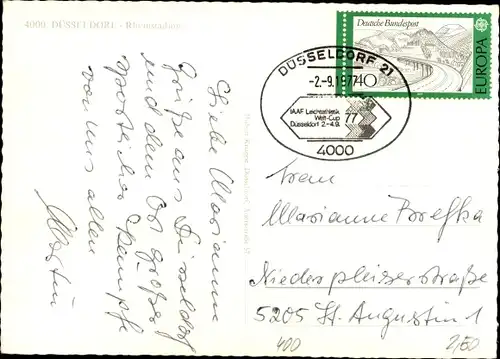 4000 DÜSSELDORF - Rheinstadion
Liebe Marianne
Grüße aus Düsseldorf
und dem Ort großer
sportlicher Kämpfe
von uns allen
Martin
Deutsche Bundespost
40
EUROPA
DÜSSELDORF 21
-2.-9.1977
IAAF Leichtathletik
Welt-Cup 77
Düsseldorf 2.-4.9.
4000
Frau
Marianne Brefka
Niederpleiserstraße
5205 St. Augustin 1
400
2,50